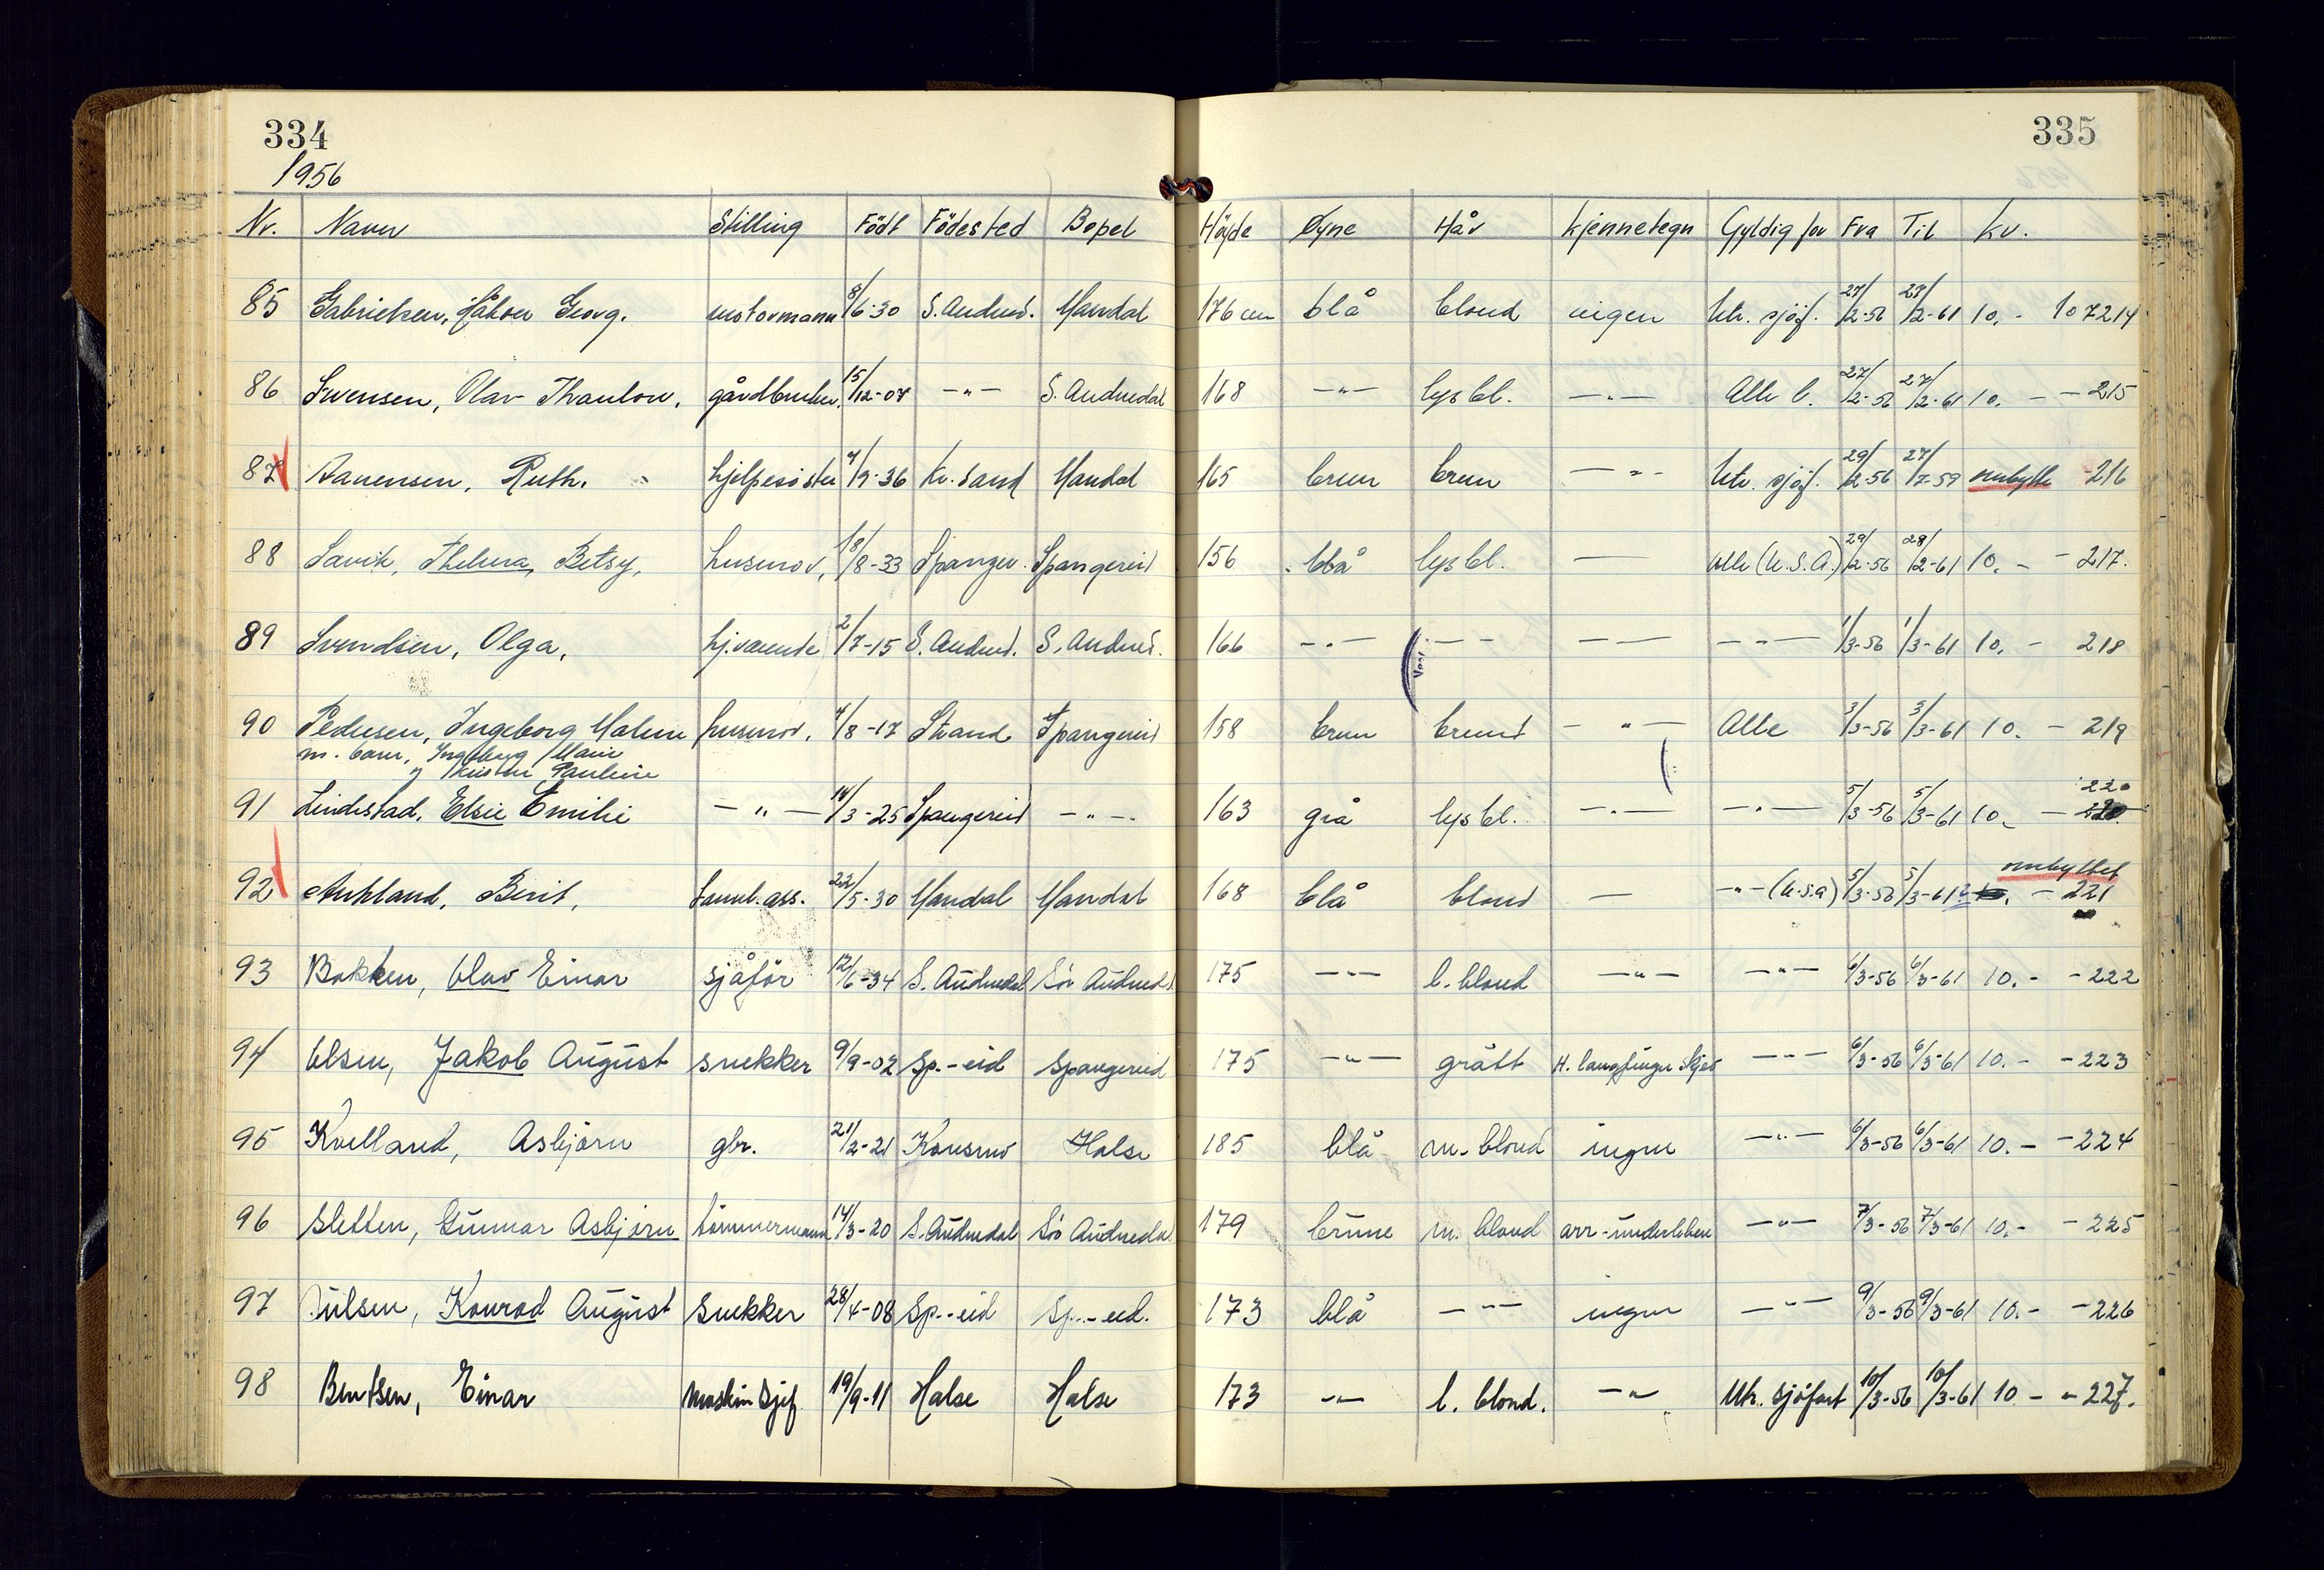 334
335
1956
Nr. Navn Stilling Född Födested Bopel Höyde Øyne Hår Kjennetegn Gyldig for Fra Til Kv.
85 Gabrielsen, Håkon Georg. motormann 8/6-30 S. Audned. Mandal 176 cm blå blond ingen Utr. sjöf. 27/2-56 27/2-61 10.- 107214
86 Svensen, Olav Thranlow. gårdbruker. 15/12-07 -"- S. Audnedal 168 -"- lys bl. -"- Alle l. 27/2-56 27/2-61 10. - - 215
87 Aanensen, Ruth. hjelpesöster 4/9-36 Kr. Sand Mandal 165 brun brun -"- Utr. sjöf. 29/2-56 27/7-59 ombytte -216
88 Savik, Thelma, Betsy, husmor, 18/8-33 Spanger. Spangereid 156 blå lys bl. — alle (U.S.A.) 29/2-56 28/2-61 10. - - 217.
89 Svendsen, Olga, hj.værende 2/7-15 S. Audned. S. Audned. 166 -"- -"- -"- -"- 1/3-56 1/3-61 10. - 218
90 Pedersen, Ingeborg Malene husmor, 4/8-17 Strand Spangereid 158 brun brunt -"- Alle 3/3-56 3/3-61 10. - 219
m. barn, Ingeborg Marie
og Kirsten Pauline
220
91 Lindestad, Elsie Emilie -"- 14/3-25 Spangereid -"- 163 grå lys bl. -"- -"- 5/3-56 5/3-61 10.- - 220
ombyttet
92 Aukland, Berit, tannl. ass. 22/5-30 Mandal Mandal 168 blå blond — -"-(U.S.A) 5/3-56 5/3-61 10. - 221
93 Bakken, Olav Einar sjåför 12/6-34 S. Audnedal Sör Audnedal 175 -"- l. blond -"- -"- 6/3-56 6/3-61 10.- -222
94 Olsen, Jakob August snekker 9/9-02 Sp.-eid Spangereid 175 -"- grått H. langfinger skjev -"- 6/3-56 6/3-61 10.- -223
95 Kvelland, Asbjörn gbr. 21/2-21 Konsmo Halse 185 blå m. blond ingen -"- 6/3-56 6/3-61 10.- -224
96 Sletten, Gunnar Asbjörn tömmermann 14/3-20 S. Audnedal Sör Audnedal 179 brune m. blond arr-underleben -"- 7/3-56 7/3-61 10.- -225
97 Julsen, Konrad August Snekker 28/4-08 Sp.-eid Sp.-eid. 173 blå -"- ingen -"- 9/3-56 9/3-61 10.- -226
98 Bentsen, Einar Maskinsjef 19/9-11 Halse Halse 173 -"- l. blond. -"- Utr. Sjöfart 10/3-56 10/3-61 10 - - 227.